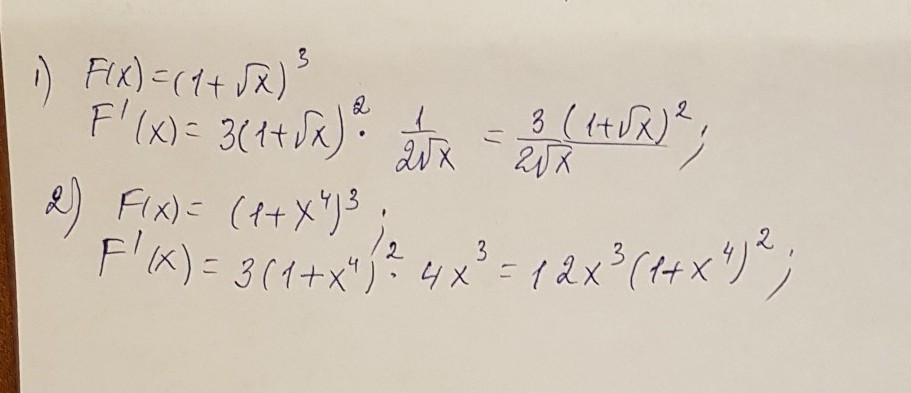 1) F(x)=(1+√x)³
F'(x)= 3(1+√x)²· 1/(2√x) = 3(1+√x)²/(2√x);
2) F(x)= (1+x⁴)³;
F'(x)= 3(1+x⁴)²· 4x³ = 12x³(1+x⁴)²;